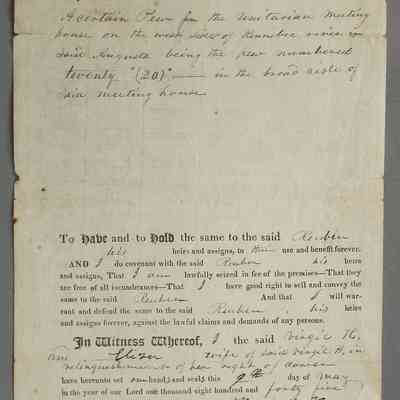 A certain Pew in the Unitarian Meeting
house on the west side of Kennebec river in
said Augusta being the pew numbered
twenty "(20)" — in the broad aisle of
said meeting house
To Have and to Hold the same to the said Reuben
his heirs and assigns, to their use and benefit forever.
AND I do covenant with the said Reuben his heirs
and assigns, That I am lawfully seized in fee of the premises—That they
are free of all incumbrances—That I have good right to sell and convey the
same to the said Reuben And that I will war-
rant and defend the same to the said Reuben, his heirs
and assigns forever, against the lawful claims and demands of any persons.
In Witness Whereof, I the said Virgil H.
and wife of said Virgil H, in
relinquishment of her right of dower
have hereunto set our hands and seals this day of May
in the year of our Lord one thousand eight hundred and forty five